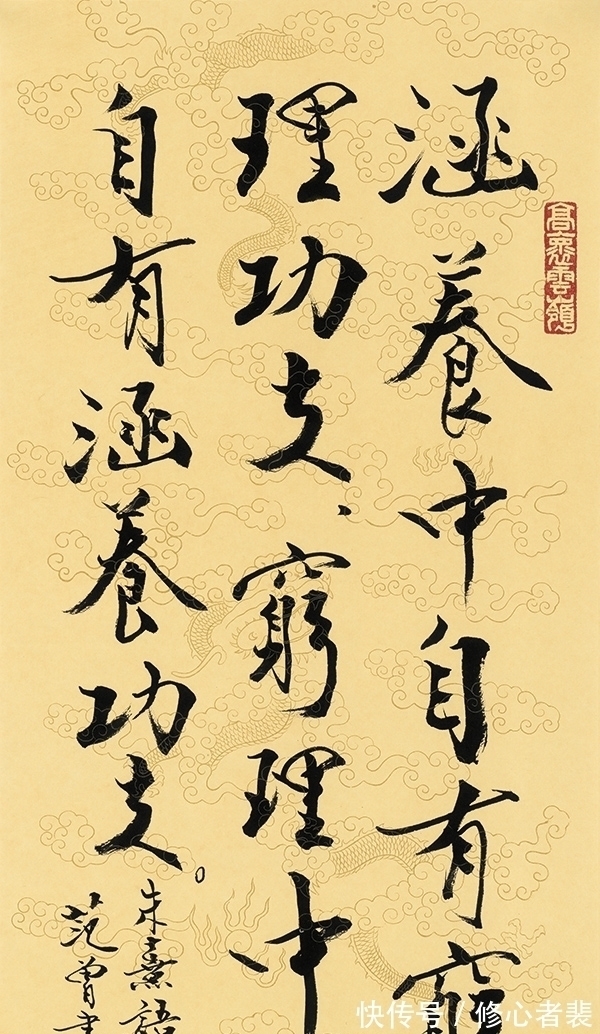 涵養中自有窮
理功夫、窮理中
自有涵養功夫。
朱熹語
范曾書
快传号 / 修心者裴